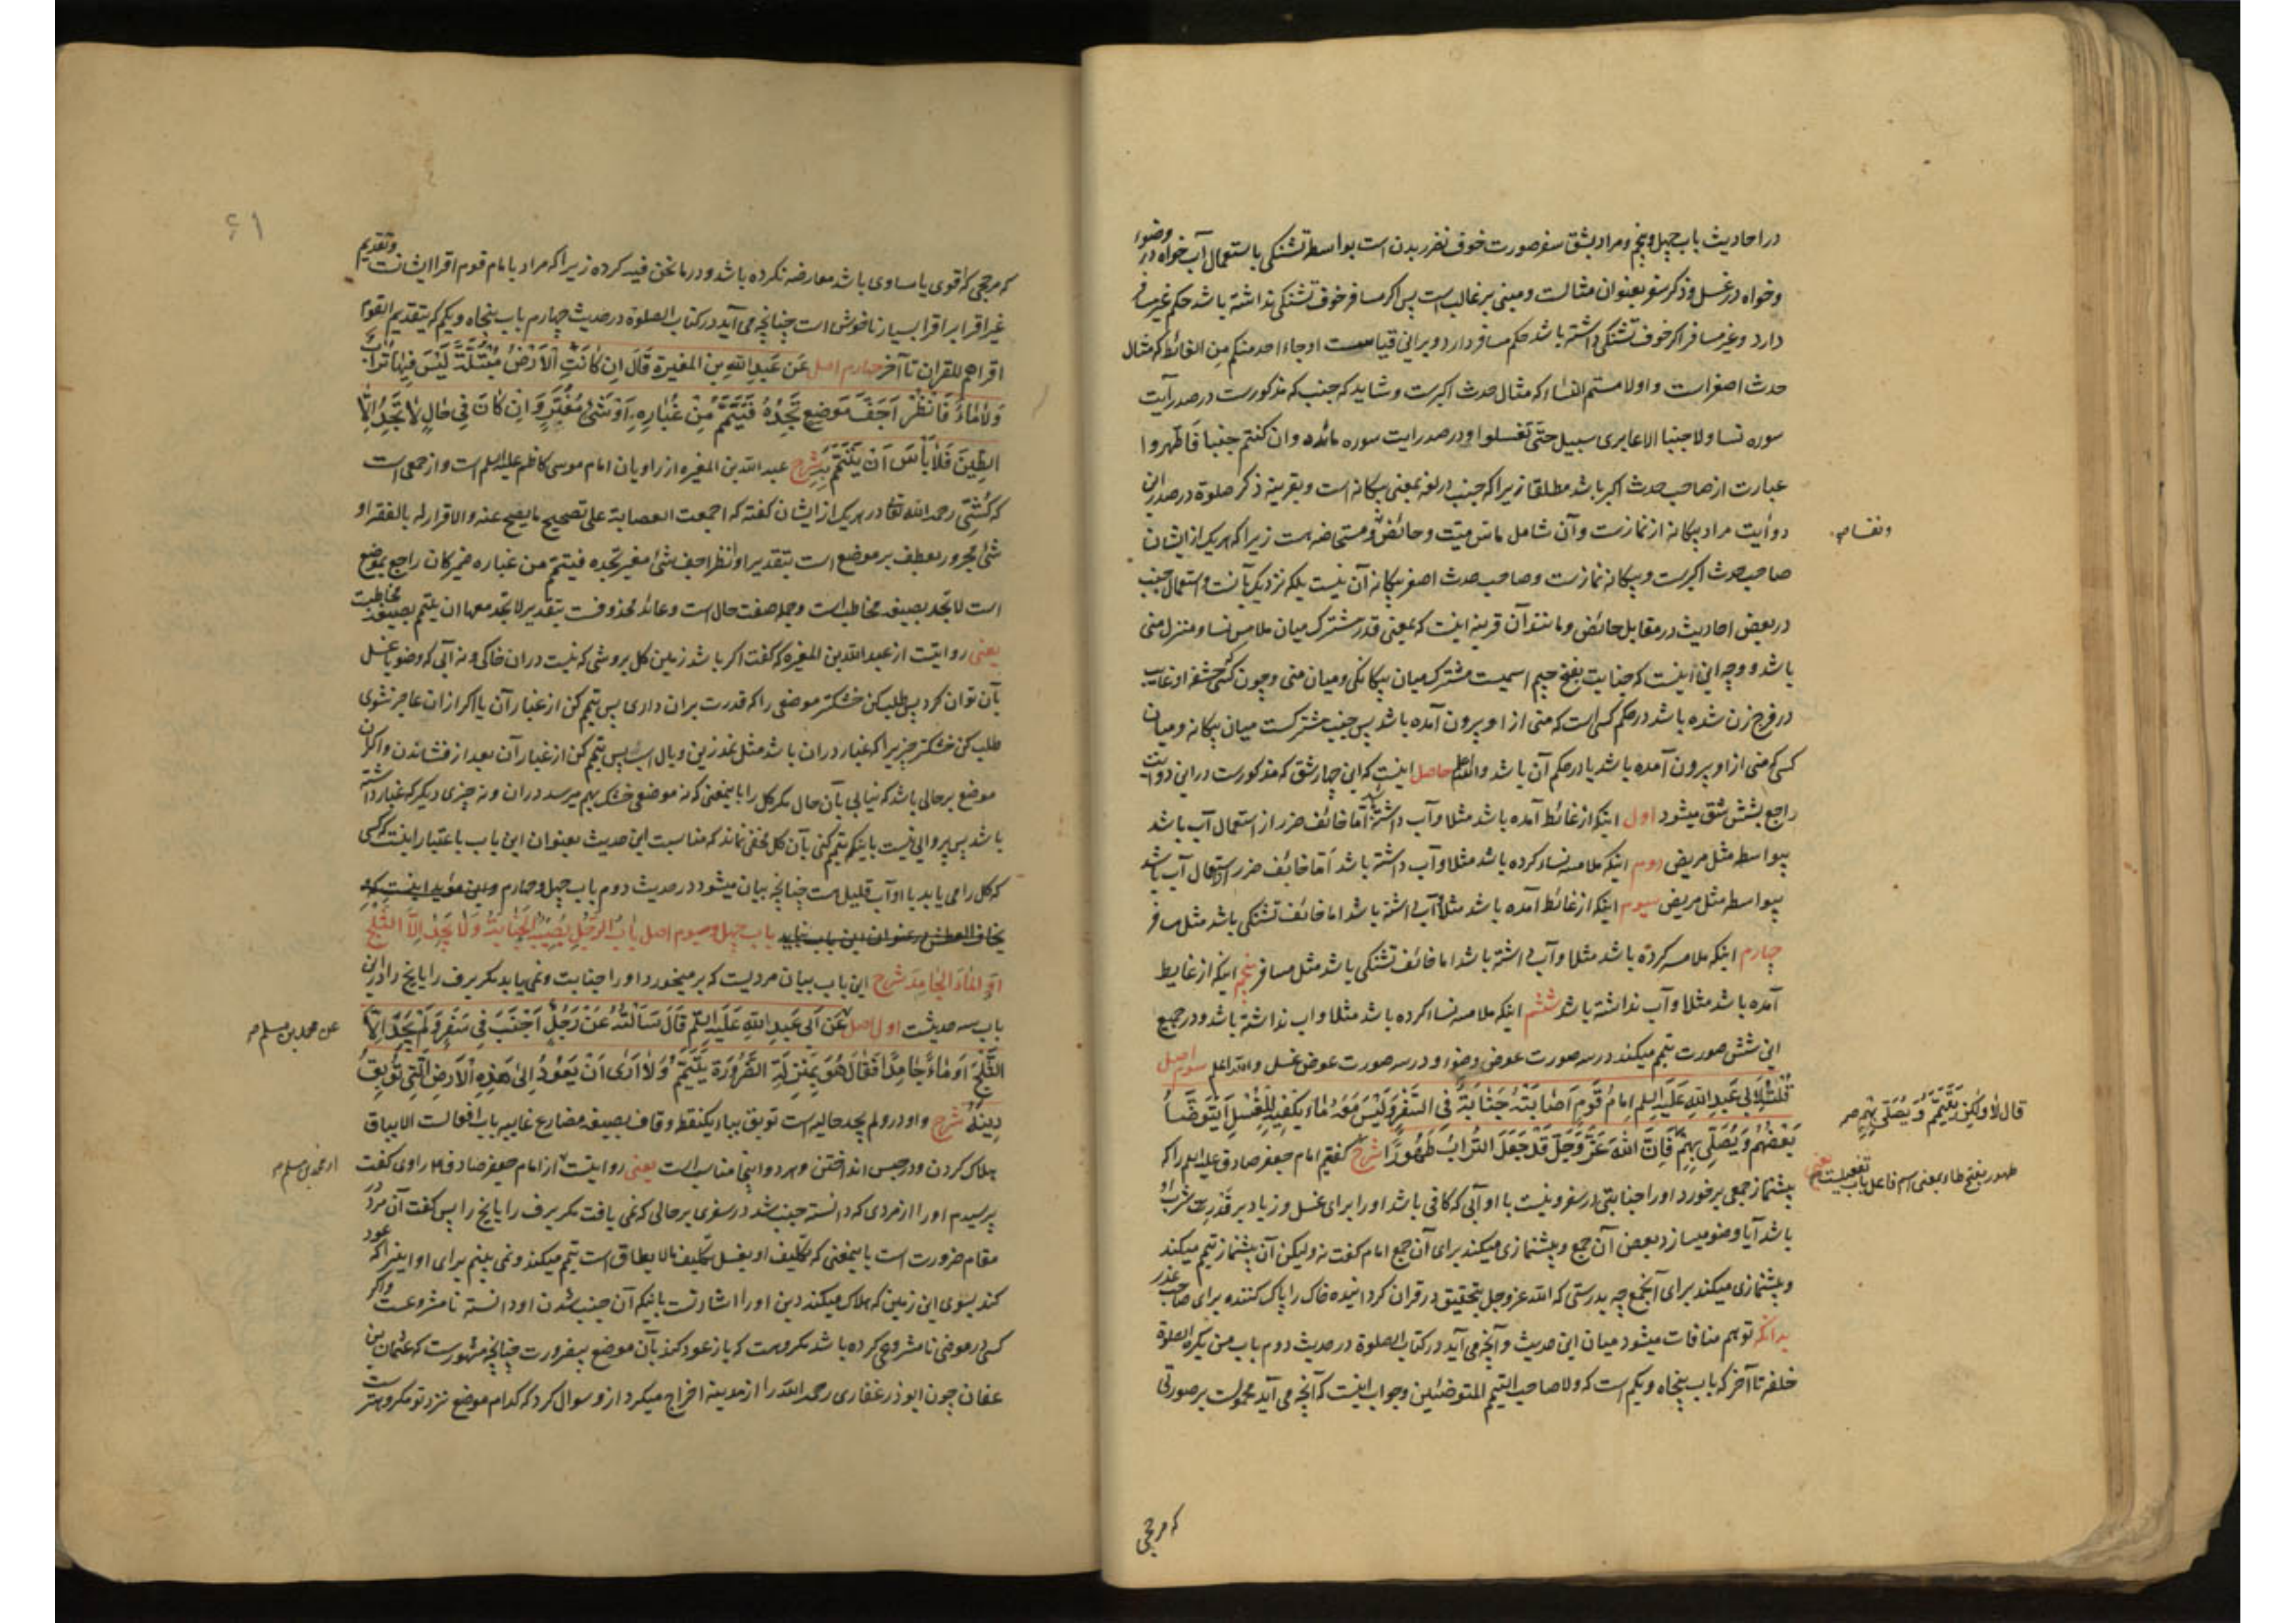 در احادیث باب چهل و پنجم و مراد بشق سفر صورت خوف ضرر بدن است بواسطه تشنگی باستعمال آب خواه در وضوء
و خواه در غسل و ذکر سفر بعنوان مثالست و مبنی بر غالب است پس اکر مسافر خوف تشنگی نداشته باشد حکم غیر مسافر
دارد و غیر مسافر اکر خوف تشنگی داشته باشد حکم مسافر دارد و برانی قیاس است او جاء احد منکم من الغائط که مثال
حدث اصغر است و او لامستم النساء که مثال حدث اکبرست و شاید که جنب که مذکورست در صدر آیت
سوره نسا ولا جنبا الا عابری سبیل حتی تغسلوا و در صدر ایت سوره مائده و ان کنتم جنبا فاطهروا
عبارت از صاحب حدث اکبر باشد مطلقا زیرا که جنب در لغة بمعنی بیکانه است و بقرینه ذکر صلوة در صدر این
دو آیت مراد بیکانه از نمازست و آن شامل ماس میت و حائض و مستحاضه هست زیرا که هر یک از ایشان
ونفسا صح
صاحب حدث اکبرست و بیکانه نمازست و صاحب حدث اصغر بیکانه آن نیست بلکه نزدیک بآنست و استعمال جنب
در بعض احادیث در مقابل حائض و مانند آن قرینه اینست که بمعنی قدر مشترک میان ملامس نسا و منزل منی
باشد و وجه این اینست که جنابت بفتح جیم اسمیست مشترک میان بیکانکی و میان منی و چون کسی که حشفه او غایب
در فرج زن شده باشد در حکم کسی است که منی از او بیرون آمده باشد پس جنب مشترکست میان بیکانه و میان
کسی که منی از او بیرون آمده باشد یا در حکم آن باشد والله اعلم حاصل اینست که این چهار شق که مذکورست در این دو آیت
راجع بشش شق میشود اول اینکه از غائط آمده باشد مثلا و آب داشته باشد اما خائف ضرر از استعمال آب باشد
بیواسطه مثل مریض دوم اینکه ملامسه نساء کرده باشد مثلا و آب داشته باشد اما خائف ضرر از استعمال آب باشد
بیواسطه مثل مریض سیوم اینکه از غائط آمده باشد مثلا و آب داشته باشد اما خائف تشنگی باشد مثل مسافر
چهارم اینکه ملامسه کرده باشد مثلا و آب داشته باشد اما خائف تشنگی باشد مثل مسافر پنجم اینکه از غایط
آمده باشد مثلا و آب نداشته باشد ششم اینکه ملامسه نساء کرده باشد مثلا و اب نداشته باشد و در جمیع
این شش صورت تیمم میکند در سه صورت عوض وضوء و در سه صورت عوض غسل والله اعلم سیوم اصل
قُلْتُ لِاَبی عَبدِ اللهِ عَلَیهِ السلم اِمامُ قَومٍ اَصابَتْهُ جَنَابَةٌ فی السَّفَرِ وَلَیْسَ مَعَهُ مَاءٌ یَکْفیهِ لِلْغُسْلِ اَیَتَوَضَّأُ
قال لا ولکِن یَتَیَمَّمُ وَ یُصَلّی بِهِم صح
بَعْضُهُم وَ یُصَلّی بِهِم فَاِنَّ اللهَ عَزَّ وَجَلَّ قَدْ جَعَلَ التُّرَابَ طَهُورًا شرح گفتم امام جعفر صادق علیه السلم را که
طهور بفتح طاء بمعنی اسم فاعل باب تفعیلست صح یعنی
پیشنماز جمعی برخورد او را جنابتی در سفر و نیست با او آبی که کافی باشد او را برای غسل و زیاد بر قدر شرب او
باشد آیا وضو میسازد بعض آن جمع و پیشنمازی میکند برای آن جمع امام گفت نه ولیکن آن پیشنماز تیمم میکند
و پیشنمازی میکند برای آنجمع چه بدرستی که الله عز وجل بتحقیق در قران کردانیده خاک را پاک کننده برای صاحب عذر
بدانکه توهم منافات میشود میان این حدیث و آنچه می آید در کتاب الصلوة در حدیث دوم باب من یکره الصلوة
خلفه تا آخر که باب پنجاه و یکم است که ولا صاحب التیمم المتوضئین و جواب اینست که آنچه می آید محمولست بر صورتی
که مرجحی
۶۱
که مرجحی که اقوی یا مساوی باشد معارضه نکرده باشد و در ما نحن فیه کرده زیرا که مراد بامام قوم اقرا ایشانست و تقدیم
غیر اقرا بر اقرا بسیار ناخوش است چنانچه می آید در کتاب الصلوة در حدیث چهارم باب پنجاه و یکم که یتقدم القوم
اقراهم للقران تا آخر چهارم اصل عَن عَبدِ اللهِ بنِ المغیرةِ قَالَ اِن کَانَتِ الْاَرْضُ مُبْتَلَّةً لَیْسَ فِیهَا تُرَابٌ
وَلَا مَاءٌ فَانْظُرْ اَجَفَّ مَوْضِعٍ تَجِدُهُ فَتَیَمَّمْ مِنْ غُبَارِهِ اَوْ شَیْءٍ مُغْبَرٍّ وَ اِن کَانَ فِی حَالٍ لَا تَجِدُ اِلَّا
الطِّینَ فَلَا بَأسَ اَنْ یَتَیَمَّمَ بِهِ شرح عبد الله بن المغیره از راویان امام موسی کاظم علیه السلم است و از جمعی است
که کشّی رحمه الله تعا در هر یک از ایشان گفته که اجمعت العصابة علی تصحیح ما یصح عنه و الاقرار له بالفقه او
شیء مجرور معطوف بر موضع است بتقدیر او انظر اجف شیء مغبر تجده فتیمم من غباره ضمیر کان راجع بموضع
است لا تجد بصیغه مخاطب است و جمله صفت حال است و عائد محذوفست بتقدیر لا تجد معها ان یتیمم بصیغه مخاطبست
یعنی روایتست از عبد الله بن المغیره که گفت اکر باشد زمین کل بروشی که نیست دران خاکی و نه آبی که وضو یا غسل
بآن توان کرد پس طلب کن خشکتر موضعی را که قدرت بران داری پس تیمم کن از غبار آن یا اکر ازان عاجز شوی
طلب کن خشکتر چیزیرا که غبار دران باشد مثل نمد زین و یال اسب پس تیمم کن از غبار آن بعد از فشاندن و اکر آن
موضع بر حالی باشد که نیابی بآن حال مکر کل را باینمعنی که نه موضعی خشک بهم میرسد دران و نه چیزی دیکر که غبار داشته
باشد پس پروایی نیست باینکه تیمم کنی بآن کل مخفی نماند که مناسبت این حدیث بعنوان این باب باعتبار اینست که کسی
که کل را می یابد با او آب قلیل هست چنانچه بیان میشود در حدیث دوم باب چهل و چهارم و این مؤید اینست که
یخاف العطش در عنوان این باب نباید باب چهل و سیوم اصل بابُ الرَّجُلِ یُصیبُهُ الْجَنابَةُ وَلَا یَجِدُ اِلَّا الثَّلْجَ
اَوِ المَاءَ الْجَامِدَ شرح این باب بیان مردیست که بر میخورد او را جنابت و نمی یابد مکر برف را یا یخ را در این
باب سه حدیثست اول اصل عَن اَبی عَبدِ اللهِ عَلَیهِ السلم قَالَ سَأَلْتُهُ عَنْ رَجُلٍ اَجْنَبَ فِی سَفَرٍ وَلَمْ یَجِدْ اِلَّا
عن محمد بن مسلم صح
الثَّلْجَ اَوْ مَاءً جَامِدًا فَقَالَ هُوَ بِمَنْزِلَةِ الضَّرُورَةِ یَتَیَمَّمُ وَلَا اَرَی اَنْ یَعُودَ اِلَی هَذِهِ الْاَرْضِ الَّتِی تُوبِقُ
دِینَهُ شرح واو در و لم یجد حالیه است توبق بباء یکنقطه و قاف بصیغه مضارع غایبه باب افعالست الایباق
هلاک کردن و در حبس انداختن و هر دو اینجا مناسب است یعنی روایتست از امام جعفر صادق ع م راوی گفت
از محمد بن مسلم صح
پرسیدم او را از مردی که دانسته جنب شد در سفری بر حالی که نمی یافت مکر برف را یا یخ را پس گفت آن مرد در
مقام ضرورت است باینمعنی که تکلیف او بغسل تکلیف ما لا یطاق است تیمم میکند و نمی بینم برای او اینرا که عود
کند بسوی این زمین که هلاک میکند دین او را اشارتست باینکه آن جنب شدن او دانسته نامشروعست و اکر
کسی در موضعی نامشروعی کرده باشد مکروهست که باز عود کند بآن موضع بیضرورت چنانچه مشهورست که عثمان بن
عفان چون ابوذر غفاری رحمه الله را از مدینه اخراج میکرد ازو سوال کرد که کدام موضع نزد تو مکروهتر است